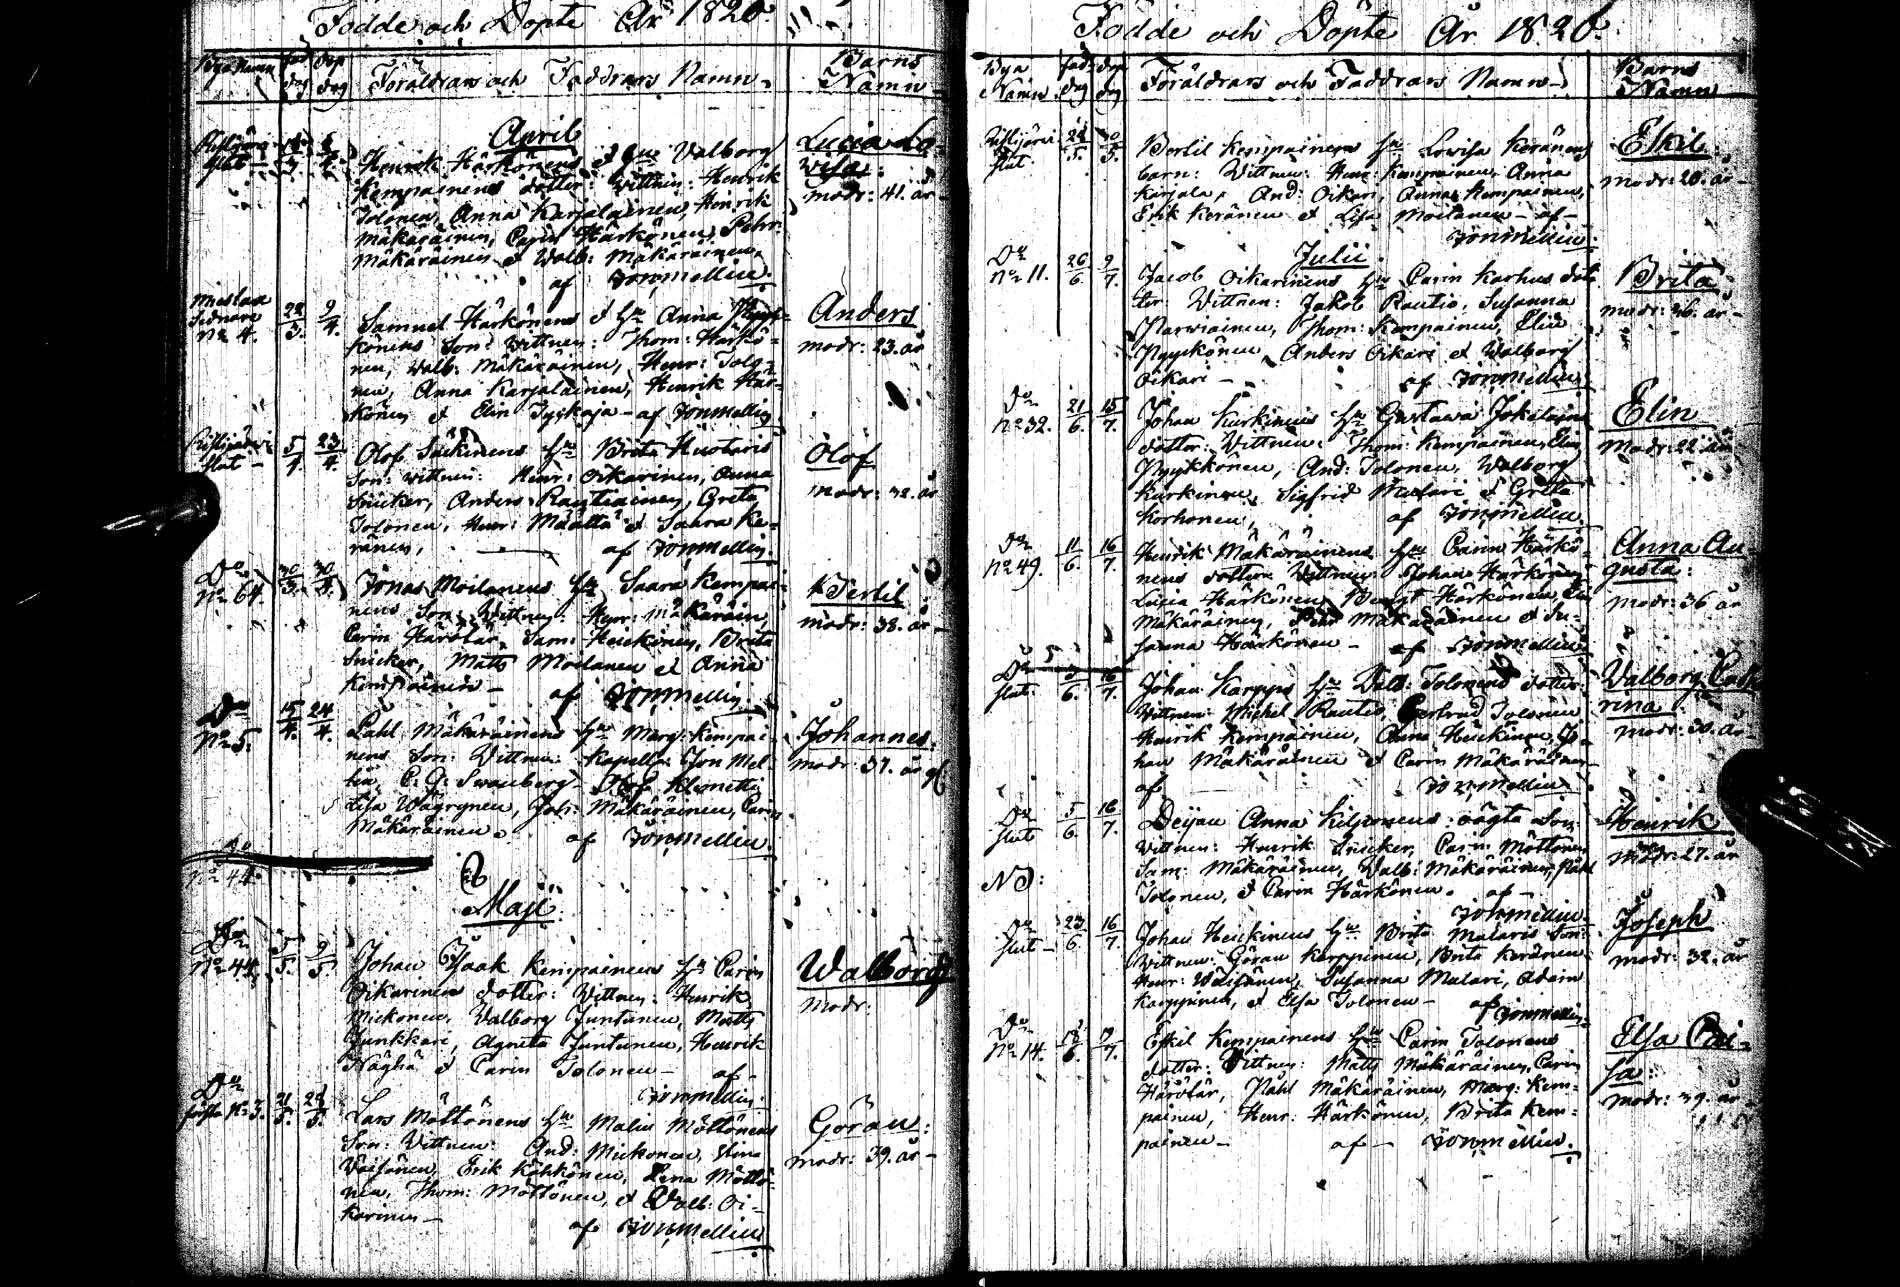 Födde och Döpte År 1820.
Bya Namn
föd dag
döp dag
Föräldrars och Faddrars Namn
Barns Namn
April
Henrik Härkönens & hu Valborg
Kempainens dotter: Wittnen: Henrik
Tolonen, Anna Karjalainen, Henrik
Mäkäräinen, Carin Härkönen, Pehr
Mäkäräinen & Walb: Mäkäräinen
af Jon Mellin.
Lucia Lo-
visa:
modr: 41. år
Nº 4.
22/3. 9/4.
Samuel Härkönens & hu Anna
könens Son: Wittnen: Thom: Härkö-
nen, Walb: Mäkäräinen, Henr: Tolo-
nen, Anna Karjalainen, Henrik Här-
könen & Elin Tyskaja - af Jon Mellin.
Anders
modr: 23. år
5/4. 23/4.
Olof Snickeriens hu Brita Huotaris
Son: Wittnen: Henr: Oikarinen, Anna
Snicker, Anders Rautiainen, Greta
Tolonen, Henr: Määttä & Saara Ke-
ränen, af Jon Mellin.
Olof
modr: 32. år
Do
Nº 64.
30/3. 30/4.
Jonas Moilanens hu Saara Kempai-
nens Son: Wittnen: Henr: Mäkäräin,
Carin Härölär, Sam: Heickinen, Brita
Snicker, Matts Moilanen & Anna
Kempainen - af Jon Mellin.
Bertil
modr: 38. år
Do
Nº 5.
15/4. 24/4.
Påhl Mäkäräinens hu Marg: Kempai-
nens Son: Wittnen: Kapellan Jon Mel-
lin, C. G. Swanberg, Olof Klemetti
Lisa Wägrynen, Joh: Mäkäräinen, Carin
Mäkäräinen. af Jon Mellin.
Johannes.
modr: 37. år
Nº 44.
Maji
Do
Nº 44.
5/5. 9/5.
Johan Isaak Kempainens hu Carin
Oikarinens dotter: Wittnen: Henrik
Mickonen, Valborg Juntunen, Matts
Junkkari, Agneta Juntunen, Henrik
Näghä & Carin Tolonen - af
Jon Mellin.
Walborg
modr:
Do
Nº 3.
21/5. 28/5.
Lars Möttönens hu Malin Möttönens
Son: Wittnen: And: Mickonen, Stina
Väisänen, Erik Köhkönen, Lena Möttö-
nen, Thom: Möttönen, & Walb: Oi-
karinen -
af Jon Mellin
Göran:
modr: 39. år -
Födde och Döpte År 1820.
Bya Namn
föd dag
döp dag
Föräldrars och Faddrars Namn
Barns Namn
Bertil Kempainens hu Lowisa Keränens
barn: Wittnen: Henr: Kempainen, Anna
Karjala, And: Oikari, Anna Kempainen,
Erik Keränen & Lisa Moilanen - af -
Jon Mellin.
Eskil
modr: 20. år -
Julii
Do
Nº 11.
26/6. 9/7.
Jacob Oikarinens hu Carin Karhus dot-
ter: Wittnen: Jakob Rautio, Susanna
Parviainen, Thom: Kempainen, Elin
Pyykönen, Anders Oikari & Walborg
Oikari - af Jon Mellin.
Brita
modr: 36. år -
Do
Nº 32.
21/6. 15/7.
Johan Kurkinens hu Gustawa Jokelains
dotter: Wittnen: Thom: Kempainen, Elin
Pyykkönen, And: Tolonen, Walborg
Kurkinen, Sigfrid Matari & Greta
Korhonen, af Jon Mellin.
Elin
modr: 22 år
Do
Nº 49.
11/6. 16/7.
Henrik Mäkäräinens hu Carin Härkö-
nens dotter: Wittnen: Johan Härkönen,
Lucia Härkönen, Bengt Härkönen, Elin
Mäkäräinen, Pehr Mäkäräinen & Su-
sanna Härkönen - af Jon Mellin.
Anna Au-
gusta:
modr: 36 år
Do
Johan Karppis hu Walb: Tolonens dotter.
Wittnen: Michel Rautio, Gertrud Tolonen
Henrik Kempainen, Anna Heickinen, Jo-
han Mäkäräinen & Carin Mäkäräinen
af Jon Mellin.
Walborg Catha
rina
modr: 30. år
Do
5/6. 16/7.
Pejian Anna Kilponens oägta son.
Wittnen: Henrik Snicker, Carin Möttönen
Sam: Mäkäräinen, Walb: Mäkäräinen, Påhl
Tolonen, & Carin Härkönen. af -
Jon Mellin.
Henrik
modr: 27. år
Do
23/6. 16/7.
Johan Heickinens hu Brita Mataris Son:
Wittnen: Göran Karppinen, Brita Keränen
Henr: Väisänen, Susanna Matari, Adam
Karppinen, & Elsa Tolonen - af Jon Mellin.
Joseph
modr: 32. år
Do
Nº 14.
Eskil Kempainens hu Carin Tolonens
dotter: Wittnen: Matts Mäkäräinen, Carin
Härölär, Påhl Mäkäräinen, Marg: Kem-
painen, Henr: Härkönen, Brita Kem-
painen - af - Jon Mellin.
Elsa Cai-
sa:
modr: 39. år